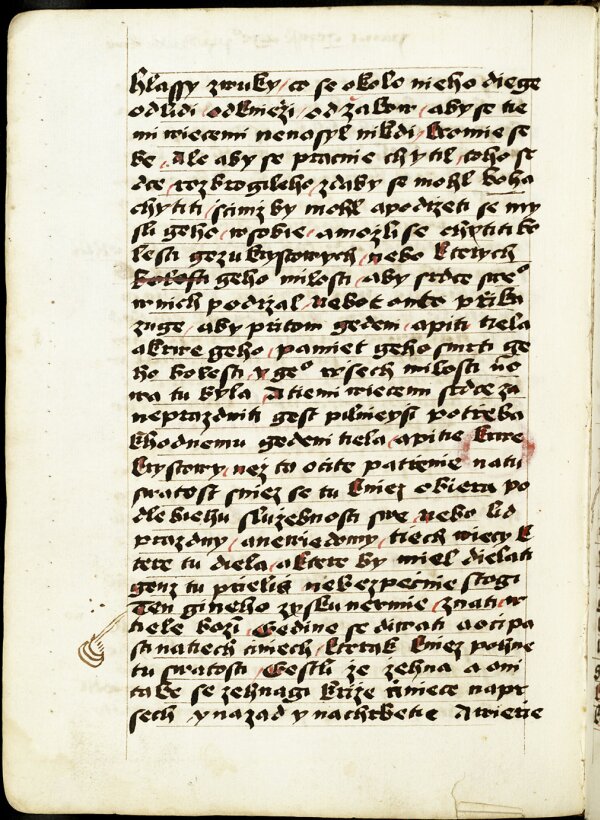 hlassy zwuky / czo se okolo nieho diege
od lidi / od kniezi / od zakow / aby se tie
mi wieczemi nenosyl nikdi / kromie se
be / Ale aby se pracznie chytil / toho sr
dce / rozbrogileho / zdaby se mohl boha
chytiti / s timz by mohl a podrzeti se my
sli geho / w sobie / a mozli se chytiti bo
lesti gezukrystowych / nebo kterych
bolesti geho milosti / aby srdce swe°
w nich podrzal / Nebot on to przika
zuge / aby przitom gedeni / a piti tiela
a krwe geho / pamiet geho smrti ge
ho bolesti / y ge° wsech milosti
na tu byla / A tiemi wieczemi srdce za
neprazdniti gest pilnieysi potrzeba
k hodnemu gedeni tiela / a pitie krwe
krystowy / nez to oczite patrzenie na tu
swatost sniez se tu kniez obiera po
dle biehu sluzebnosti swe / Nebo lid
prazdny / a newiedomy / tiech wieczy k
tere tu diela / a ktere by miel dielati
genz tu przielis nebezpecznie stogi
Ten gineho zysku nermie / znati w
tiele bozi / Gedine se diwati a oczi pa
sti na tiech cziniech / kterak kniez pohne
tu swatosti / Gestli ze zehna a oni
take se zehnagi krzize cziniece naprz
sech y nazad y na chrbetie A wierze